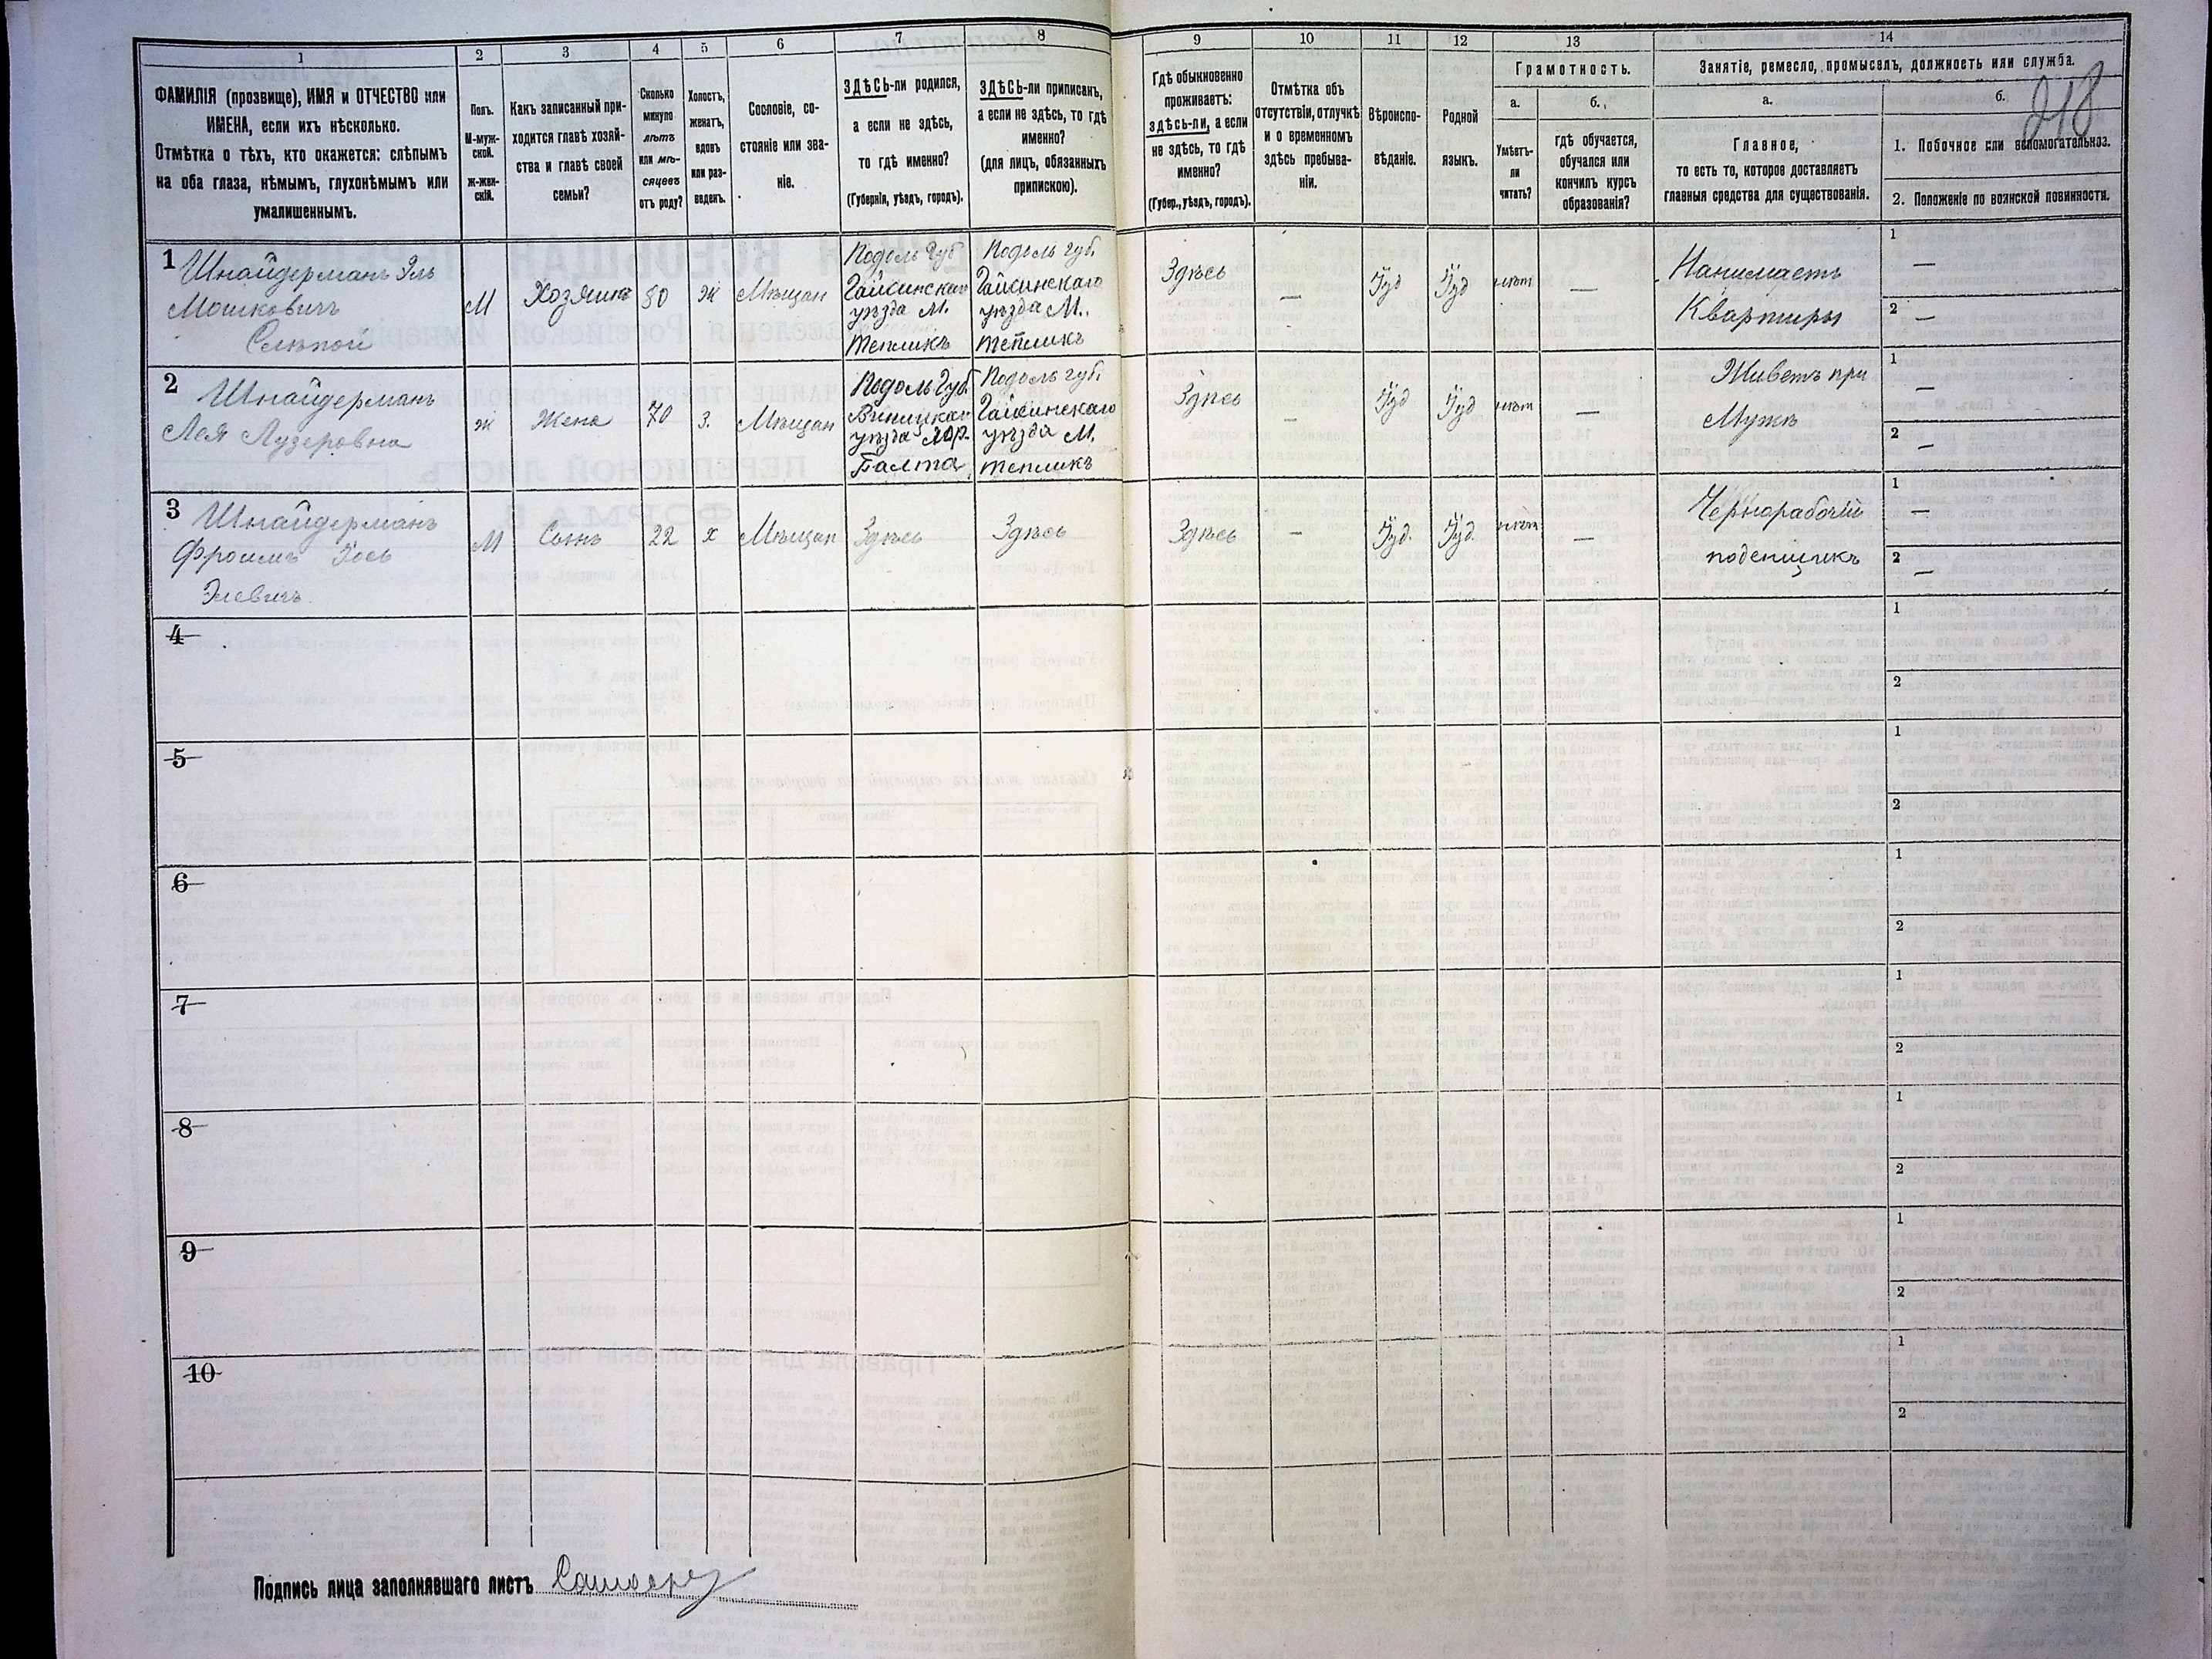 1
2
3
4
5
6
7
8
9
10
11
12
13
14
ФАМИЛІЯ (прозвище), ИМЯ и ОТЧЕСТВО или
ИМЕНА, если ихъ нѣсколько.
Отмѣтка о тѣхъ, кто окажется: слѣпымъ
на оба глаза, нѣмымъ, глухонѣмымъ или
умалишеннымъ.
Полъ.
М-муж-
ской.
ж-жен-
скій.
Какъ записанный при-
ходится главѣ хозяй-
ства и главѣ своей
семьи?
Сколько
минуло
лѣтъ
или мѣ-
сяцевъ
отъ роду?
Холостъ,
женатъ,
вдовъ
или раз-
веденъ.
Сословіе, со-
стояніе или зва-
ніе.
ЗДѢСЬ-ли родился,
а если не здѣсь,
то гдѣ именно?
(Губернія, уѣздъ, городъ).
ЗДѢСЬ-ли приписанъ,
а если не здѣсь, то гдѣ
именно?
(для лицъ, обязанныхъ
припискою).
Гдѣ обыкновенно
проживаетъ:
здѣсь-ли, а если
не здѣсь, то гдѣ
именно?
(Губер., уѣздъ, городъ).
Отмѣтка объ
отсутствіи, отлучкѣ
и о временномъ
здѣсь пребыва-
ніи.
Вѣроиспо-
вѣданіе.
Родной
языкъ.
Грамотность.
а.
б.
Умѣетъ-
ли
читать?
гдѣ обучается,
обучался или
кончилъ курсъ
образованія?
Занятіе, ремесло, промыселъ, должность или служба.
а.
б.
218
Главное,
то есть то, которое доставляетъ
главныя средства для существованія.
1. Побочное или вспомогательное.
2. Положеніе по воинской повинности.
1
Шнайдерманъ Эль
Мошковичъ
Слѣпой
М
Хозяинъ
80
ж
Мѣщан
Подоль губ
Гайсинскаго
уѣзда М.
Тепликъ
Подоль губ.
Гайсинскаго
уѣзда М.
Тепликъ
Здѣсь
—
Іуд
Іуд
нѣт
—
Нанимаетъ
Квартиры
1
—
2
—
2
Шнайдерманъ
Лея Лузеровна
ж
Жена
70
з.
Мѣщан
Подоль Губ.
уѣзда
Подоль губ.
Гайсинскаго
уѣзда М.
Тепликъ
Здѣсь
—
Іуд
Іуд
нѣт
—
Живетъ при
Мужѣ
1
—
2
—
3
Шнайдерманъ
Фроимъ Іось
Элевичъ
М
Сынъ
22
х
Мѣщан
Здѣсь
Здѣсь
Здѣсь
—
Іуд.
Іуд.
нѣт
—
Чернорабочій
поденщикъ
1
—
2
—
4
1
2
5
1
2
6
1
2
7
1
2
8
1
2
9
1
2
10
1
2
Подпись лица заполнявшаго листъ